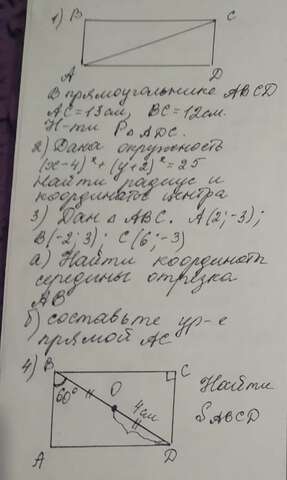 1) B C
A D
В прямоугольнике ABCD
AC = 13 см, BC = 12 см.
Н-ти P△ADC.
2) Дана окружность
(x-4)² + (y+2)² = 25
Найти радиус и
координаты центра
3) Дан △ ABC. A(2;-3);
B(-2; 3); C(6;-3)
а) Найти координаты
середины отрезка
AB
б) составьте ур-е
прямой AC
4) B C
60° O 4 см Найти
S ABCD
A D